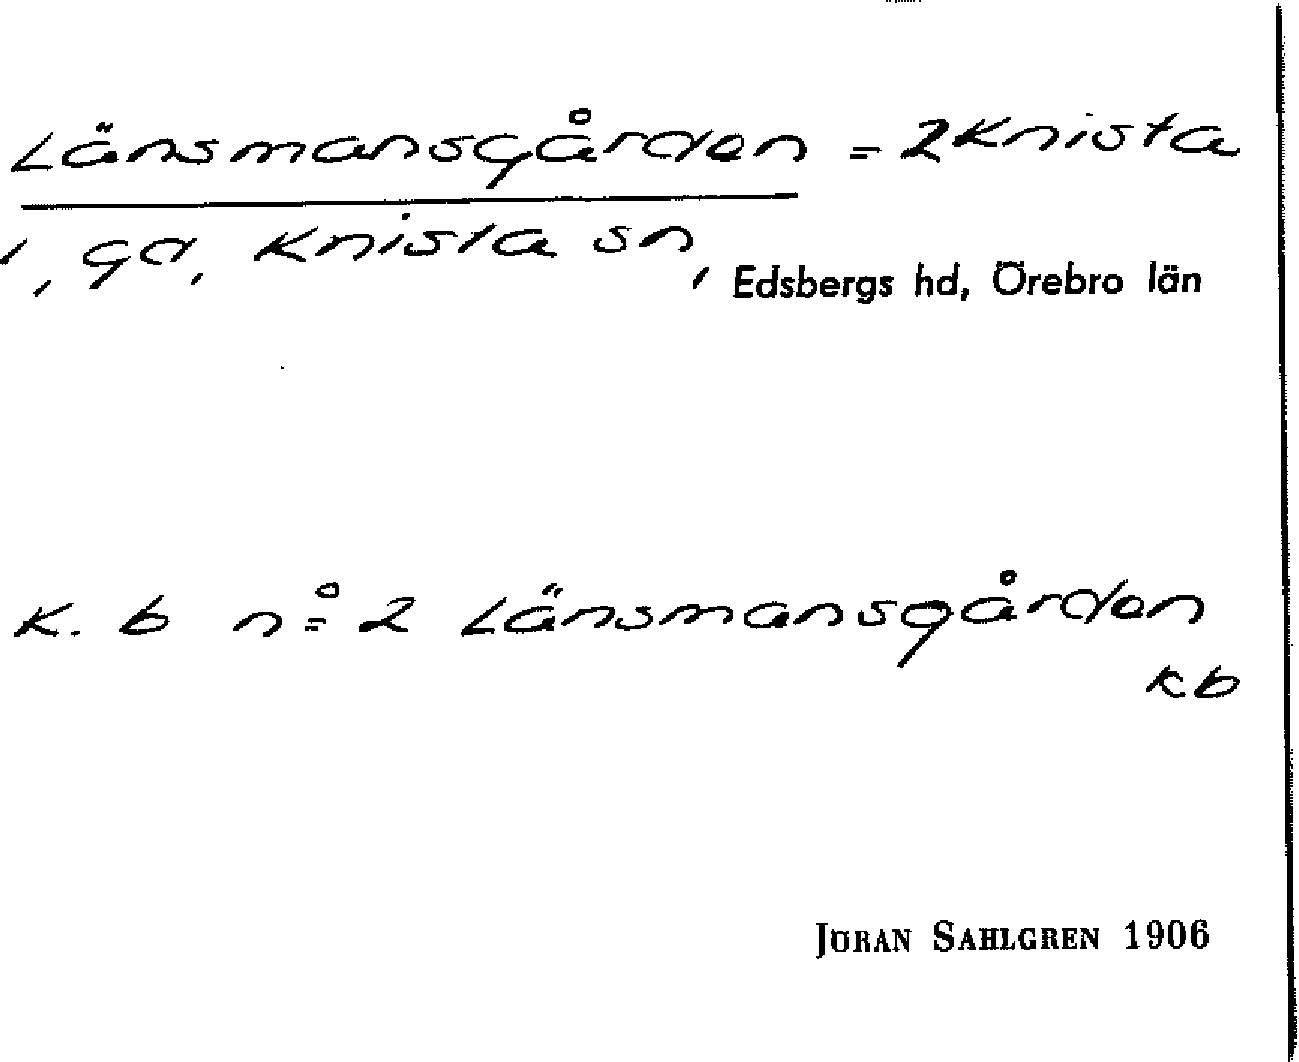 Länsmansgården = 2 Knista
1, gd, Knista sn, Edsbergs hd, Örebro län
K. b nº 2 Länsmansgården
kb
JÖRAN SAHLGREN 1906